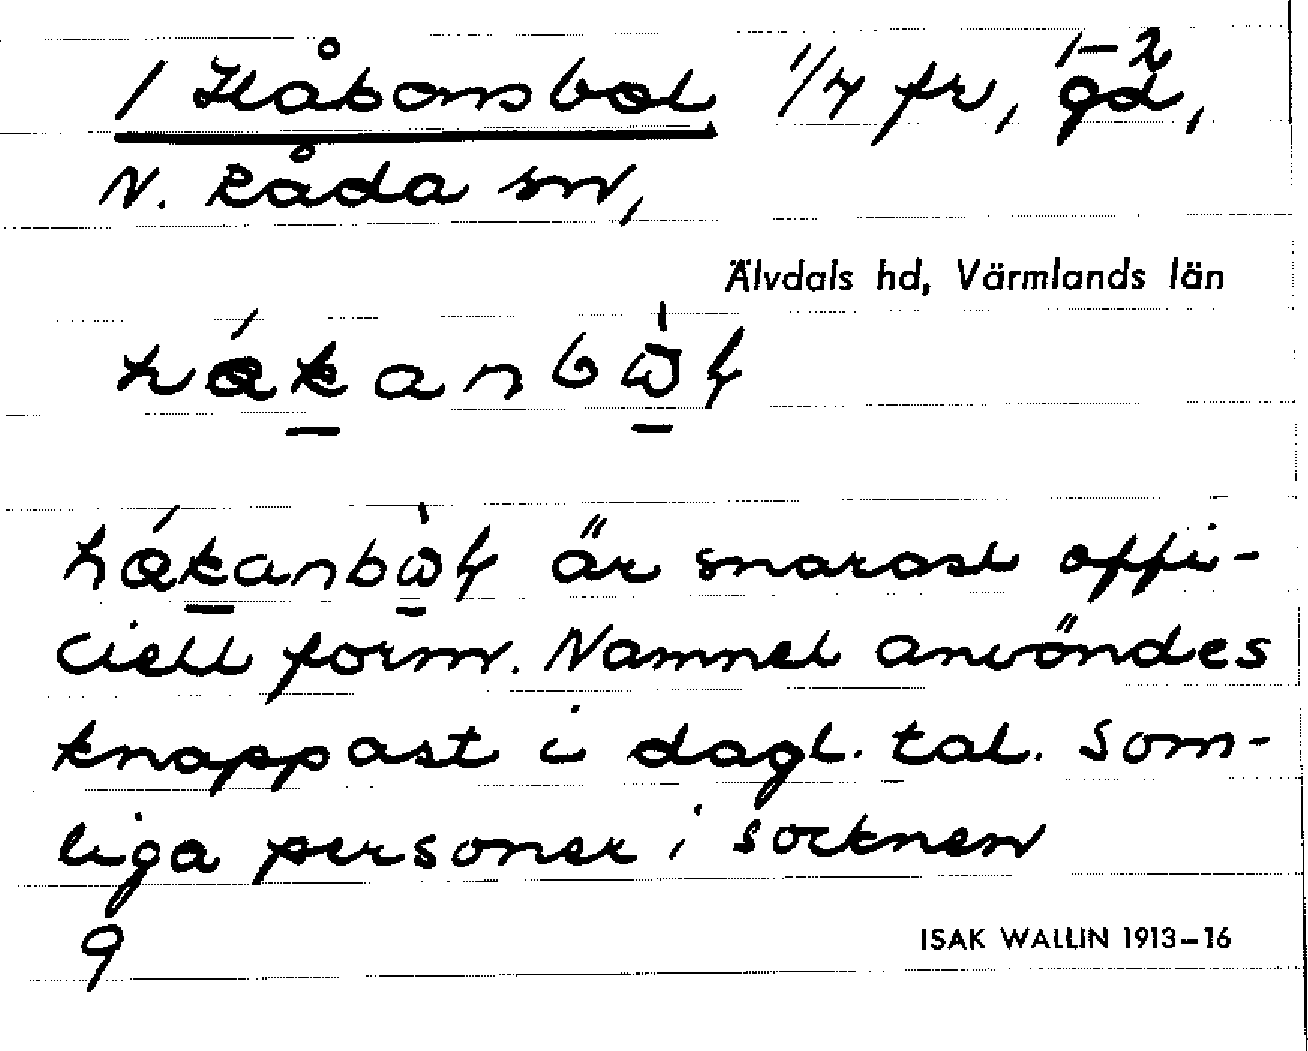 1 Håkansbol 1/4 fr, 1–2 gd,
N. Råda sn,
Älvdals hd, Värmlands län
är snarast offi-
ciell form. Namnet användes
knappast i dagl. tal. Som-
liga personer i socknen
9
ISAK WALLIN 1913–16